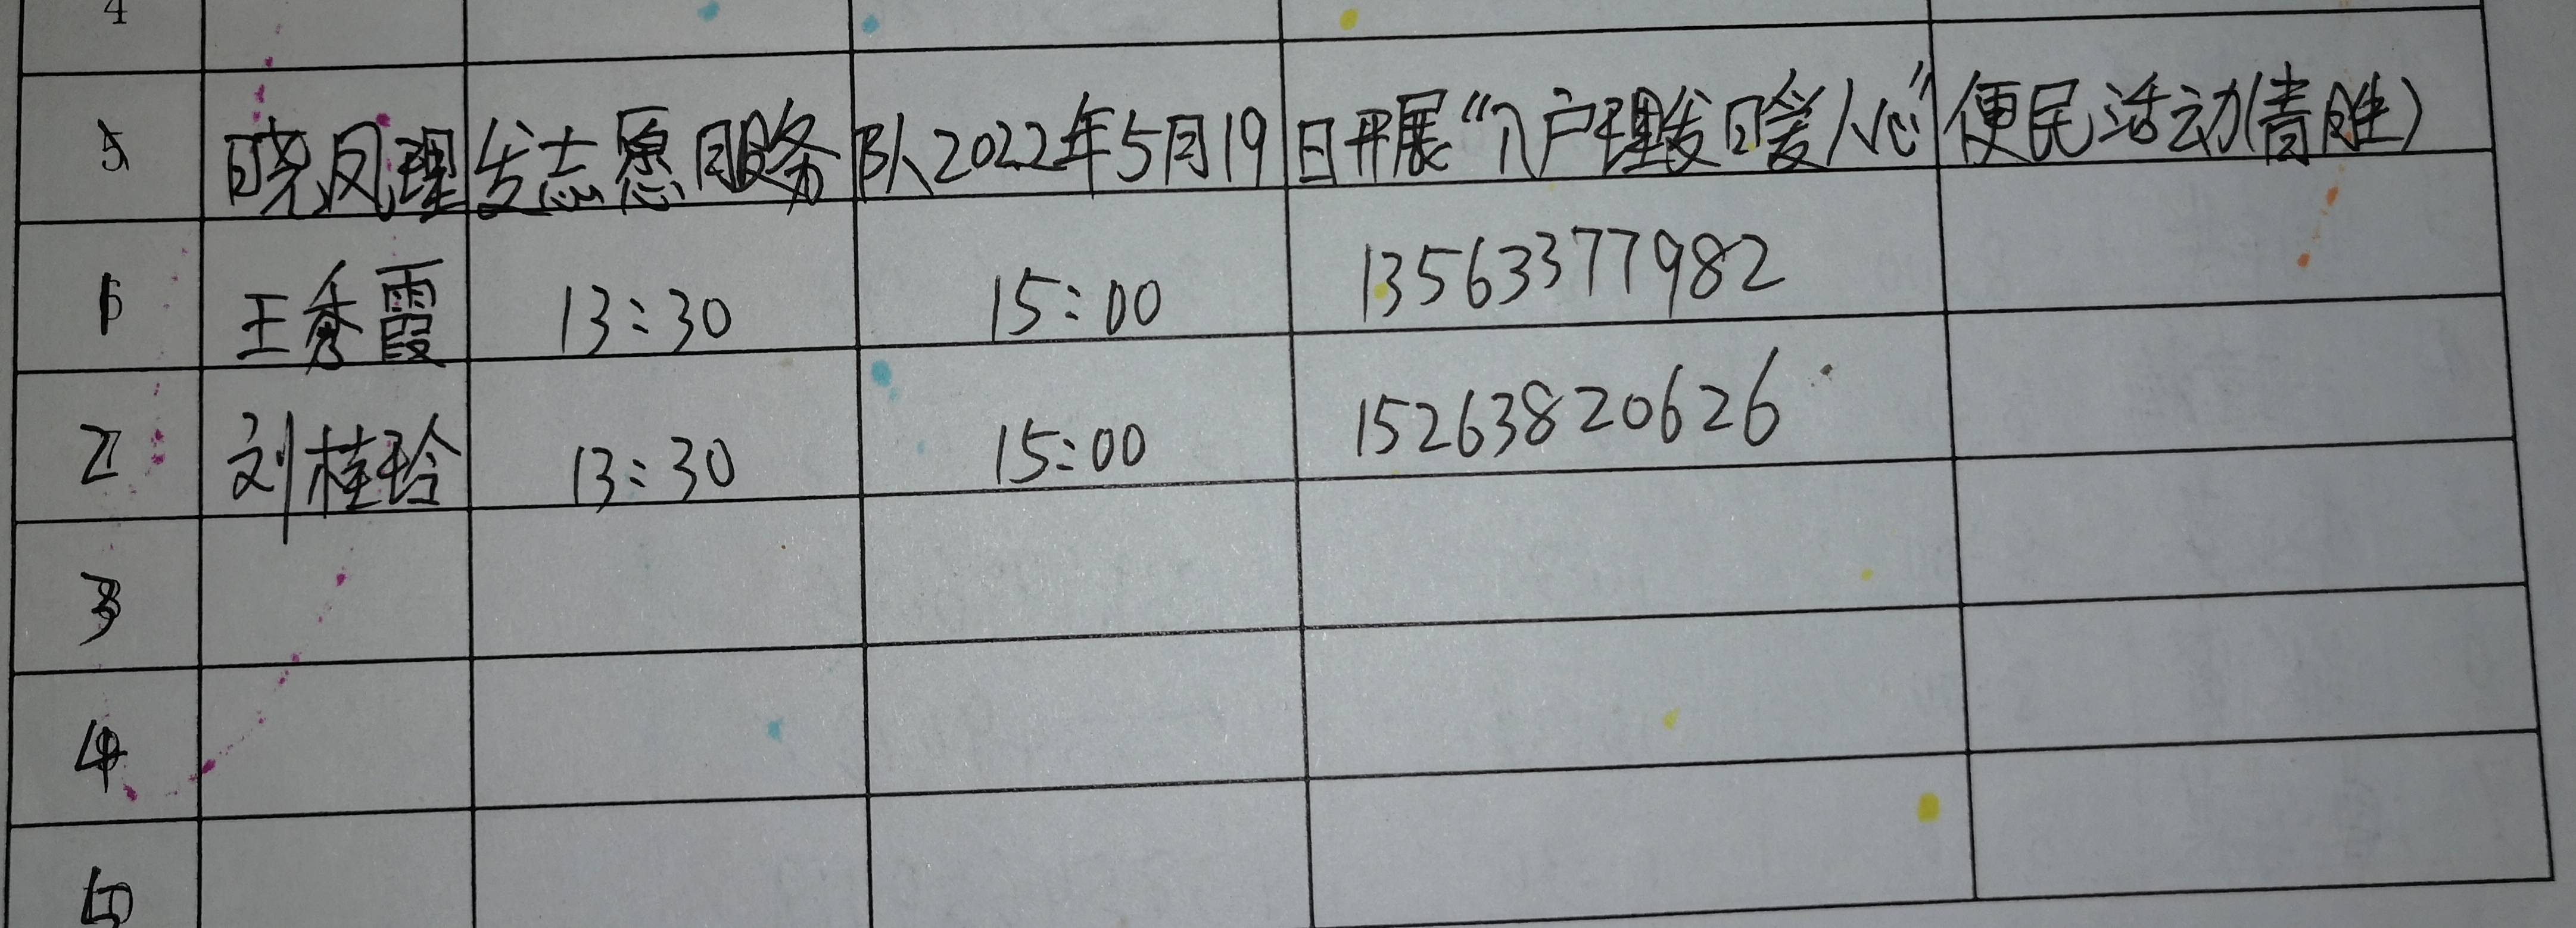 4
晓凤理发志愿服务队2022年5月19日开展“入户理发暖人心”便民活动(青胜)
1 王秀霞 13:30 15:00 13563377982
2 刘桂玲 13:30 15:00 15263820626
3
4
5